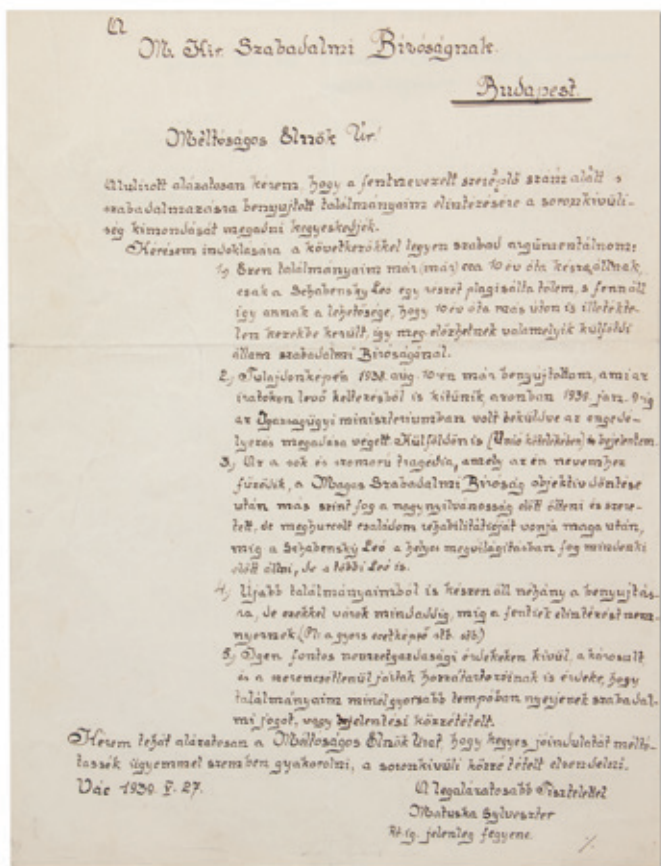 A
M. Kir. Szabadalmi Bíróságnak.
Budapest.
Méltóságos Elnök Úr!
Alulirott alázatosan kérem, hogy a fentnevezett szereplő szám alatt s
szabadalmazásra benyujtott találmányaim elintézésére a soronkivüli-
ség kimondását megadni kegyeskedjék.
Kérésem indoklására a következőkkel legyen szabad argúmentálnom:
1.) Ezen találmányaim már (már) cca 10 év óta készen állnak,
csak a Schabensky Leó egy részét plagisálta tőlem, s fennáll
így annak a lehetősége, hogy 10 év óta más úton is illetékte-
len kezekbe került, így meg előzhetnek valamelyik külföldi
állam szabadalmi Bíróságánál.
2.) Tulajdonképen 1938. aug. 10-en már benyujtottam, ami az
iratokon levő keltezésből is kitűnik azonban 1939. jan. 9-ig
az Igazságügyi minisztériumban volt beküldve az engedé-
lyezés megadása végett. Külföldön is (Unió kötelékében) is bejelentem.
3.) Az a sok és szomorú tragédia, amely az én nevemhez
fűződik, a Magas Szabadalmi Bíróság objektív döntése
után más szint fog a nagy nyilvánosság előtt ölteni és szere-
tett, de meghurcolt családom rehabilitációját vonja maga után,
mig a Schabenský Leó a helyes megvilágításban fog mindenki
előtt állni, de a többi Leó is.
4.) Újabb találmányaimból is készen áll néhány a benyujtás-
ra, de ezekkel várok mindaddig, mig a fentiek elintézést nem
nyernek. (Pl. a gyors stb. stb.)
5.) Igen fontos nemzetgazdasági érdekeken kívül, a károsult
és a szerencsétlenül jártak hozzátartozóinak is érdeke, hogy
találmányaim minél gyorsabb tempóban nyerjenek szabadal-
mi jogot, vagy bejelentési közzétételt.
Kérem tehát alázatosan a Méltóságos Elnök Urat, hogy kegyes jóindulatát méltó-
tassék ügyemmel szemben gyakorolni, a soronkivüli közzétételt elrendelni.
Vác 1939. V. 27.
A legalázatosabb Tisztelettel
Matuska Sylveszter
jelenleg fegyenc.